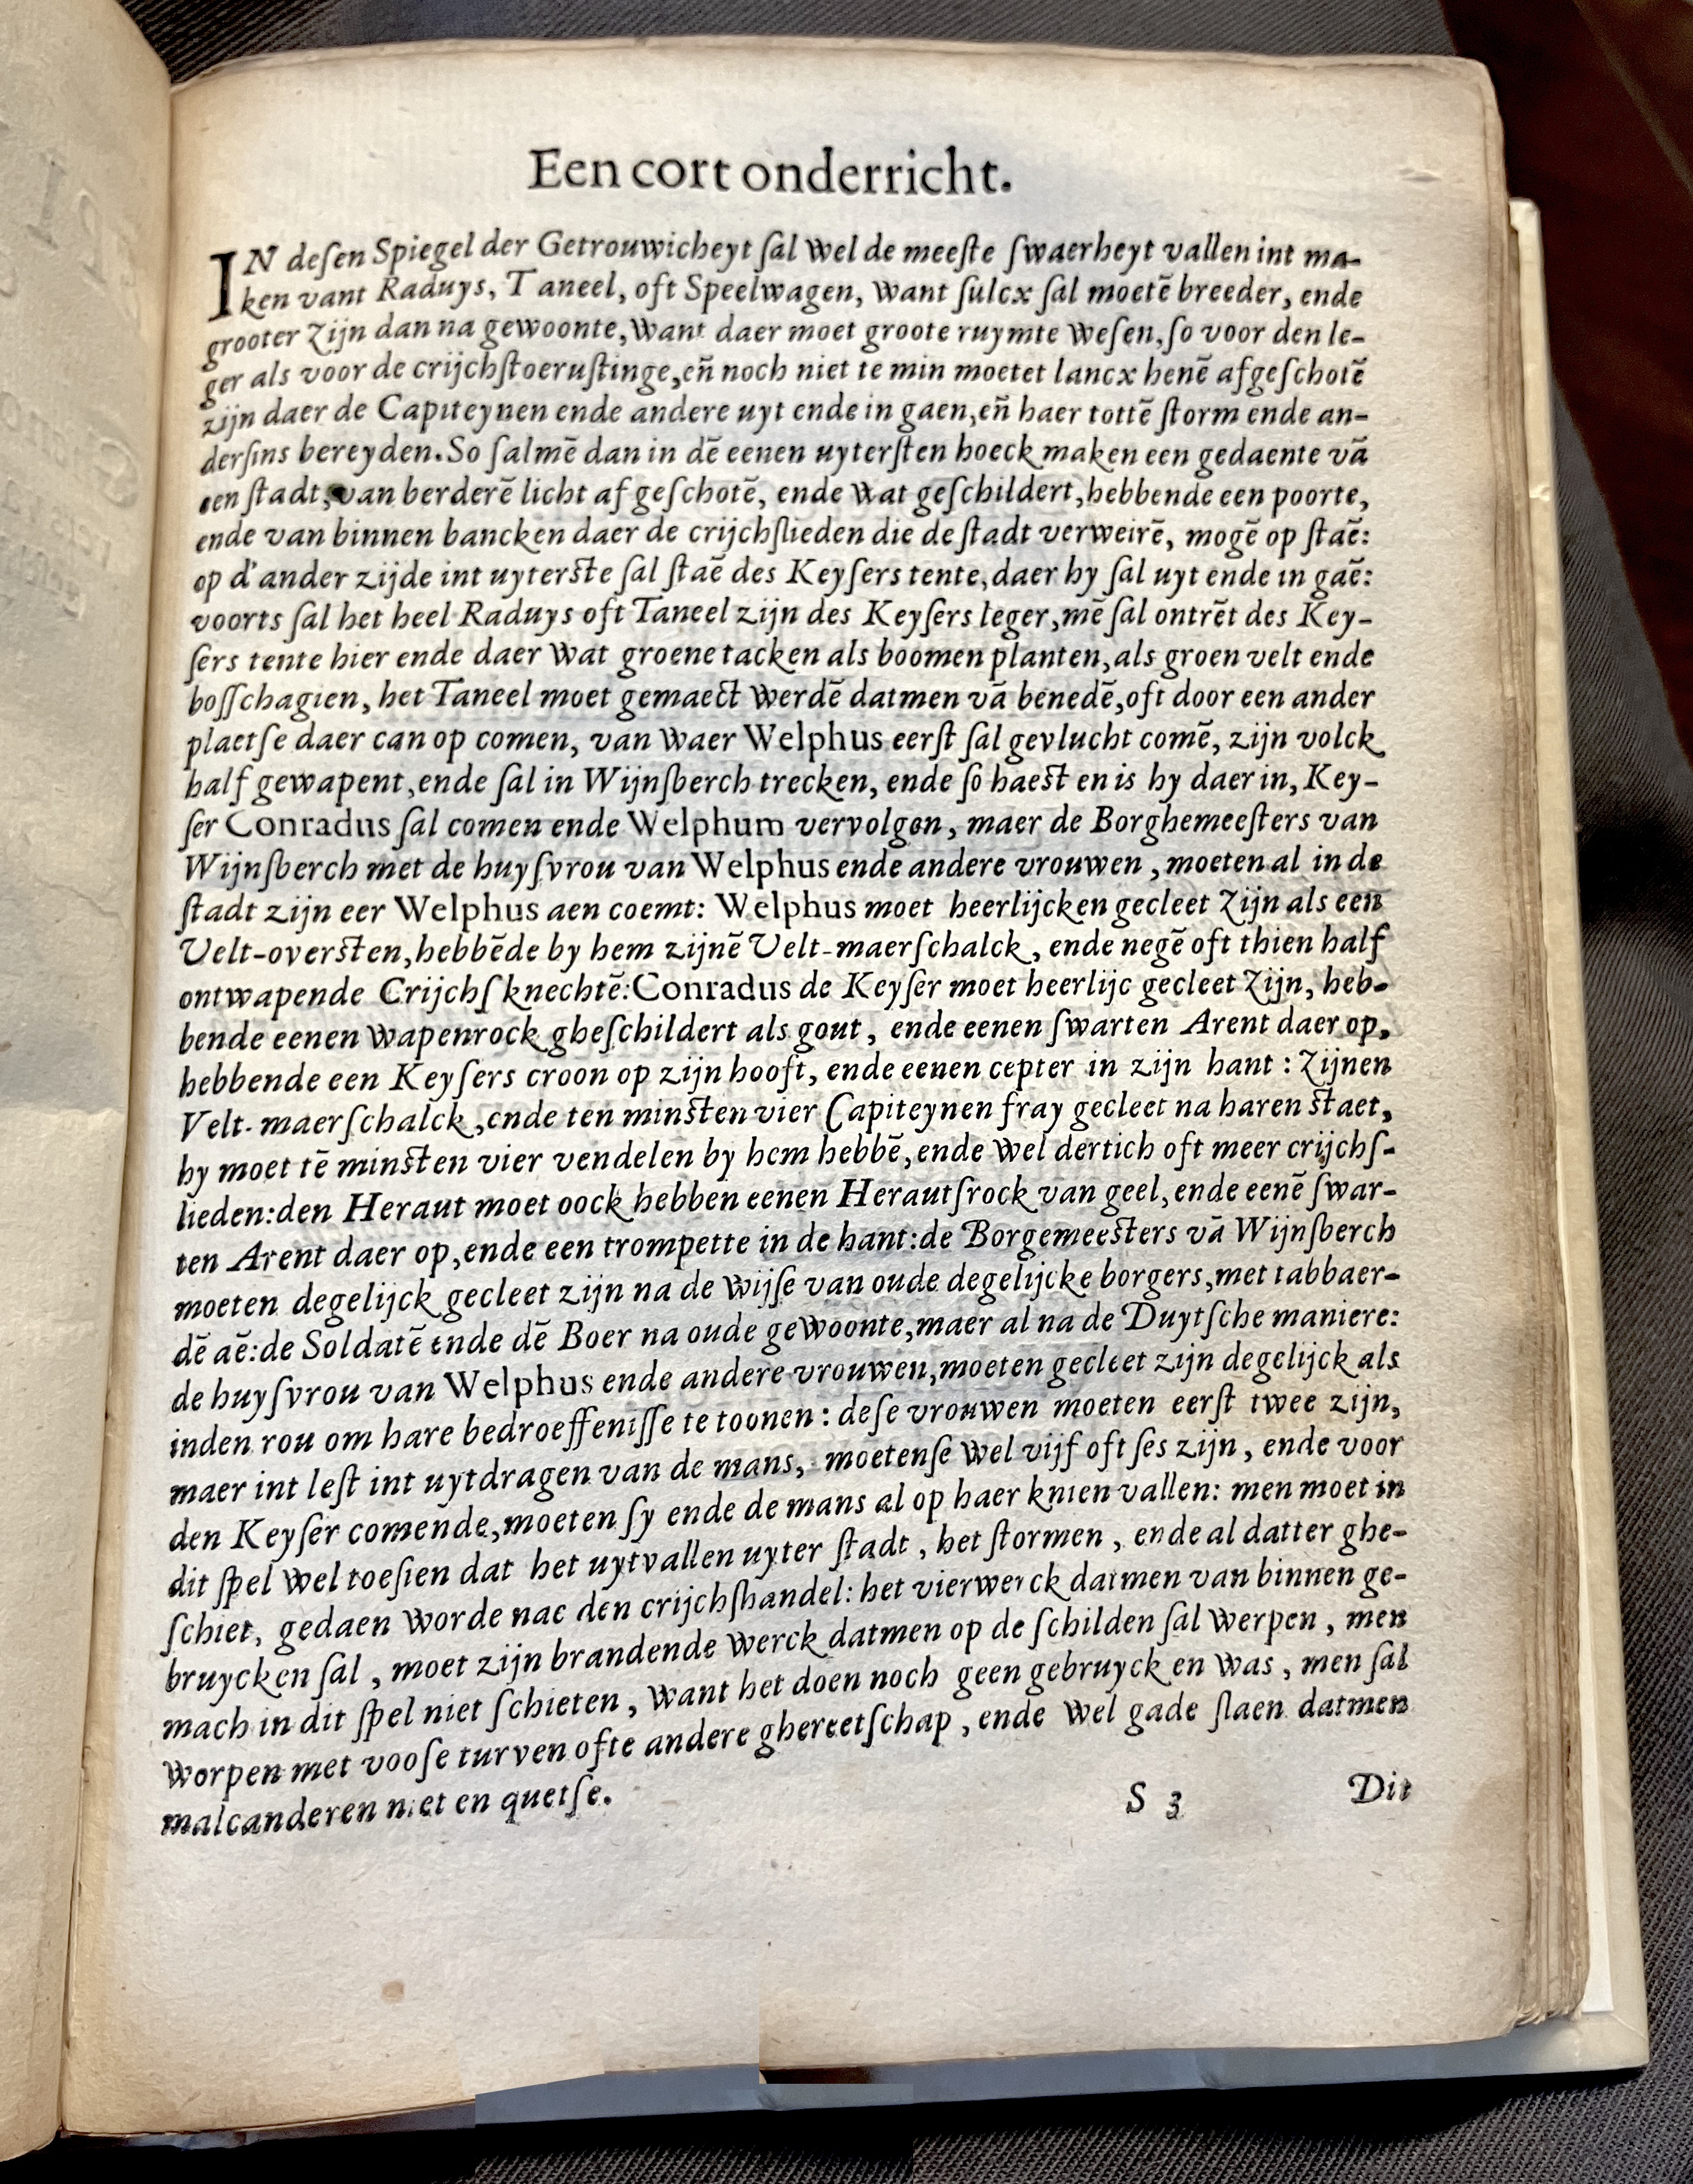 Een cort onderricht.
IN deſen Spiegel der Getrouwicheyt ſal wel de meeſte ſwaerheyt vallen int ma-
ken vant Raduys, Taneel, oft Speelwagen, want ſulcx ſal moetē breeder, ende
grooter zijn dan na gewoonte, want daer moet groote ruymte weſen, ſo voor den le-
ger als voor de crijchſtoeruſtinge, eñ noch niet te min moetet lancx henē afgeſchotē
zijn daer de Capiteynen ende andere uyt ende in gaen, eñ haer tottē ſtorm ende an-
derſins bereyden. So ſalmē dan in dē eenen uyterſten hoeck maken een gedaente vā
een ſtadt, van berderē licht afgeſchotē, ende wat geſchildert, hebbende een poorte,
ende van binnen bancken daer de crijchſlieden die de ſtadt verweirē, mogē op ſtaē:
op d'ander zijde int uyterſte ſal ſtaē des Keyſers tente, daer hy ſal uyt ende in gaē:
voorts ſal het heel Raduys oft Taneel zijn des Keyſers leger, mē ſal ontrēt des Key-
ſers tente hier ende daer wat groene tacken als boomen planten, als groen velt ende
boſſchagien, het Taneel moet gemaect werdē datmen vā benedē, oft door een ander
plaetſe daer can op comen, van waer Welphus eerſt ſal gevlucht comē, zijn volck
half gewapent, ende ſal in Wijnſberch trecken, ende ſo haeſt en is hy daer in, Key-
ſer Conradus ſal comen ende Welphum vervolgen, maer de Borghemeeſters van
Wijnſberch met de huyſvrou van Welphus ende andere vrouwen, moeten al in de
ſtadt zijn eer Welphus aen coemt: Welphus moet heerlijcken gecleet zijn als een
Velt-overſten, hebbēde by hem zijnē Velt-maerſchalck, ende negē oft thien half
ontwapende Crijchſknechtē: Conradus de Keyſer moet heerlijc gecleet zijn, heb-
bende eenen wapenrock gheſchildert als gout, ende eenen ſwarten Arent daer op,
hebbende een Keyſers croon op zijn hooft, ende eenen cepter in zijn hant: zijnen
Velt-maerſchalck, ende ten minſten vier Capiteynen fray gecleet na haren ſtaet,
hy moet tē minſten vier vendelen by hem hebbē, ende wel dertich oft meer crijchſ-
lieden: den Heraut moet oock hebben eenen Herautſrock van geel, ende eenē ſwar-
ten Arent daer op, ende een trompette in de hant: de Borgemeeſters vā Wijnſberch
moeten degelijck gecleet zijn na de wijſe van oude degelijcke borgers, met tabbaer-
dē aē: de Soldatē ende dē Boer na oude gewoonte, maer al na de Duytſche maniere:
de huyſvrou van Welphus ende andere vrouwen, moeten gecleet zijn degelijck als
inden rou om hare bedroeffeniſſe te toonen: deſe vrouwen moeten eerſt twee zijn,
maer int leſt int uytdragen van de mans, moetenſe wel vijf oft ſes zijn, ende voor
den Keyſer comende, moeten ſy ende de mans al op haer knien vallen: men moet in
dit ſpel wel toeſien dat het uytvallen uyter ſtadt, het ſtormen, ende al datter ghe-
ſchiet, gedaen worde nae den crijchſhandel: het vierwerck datmen van binnen ge-
bruycken ſal, moet zijn brandende werck datmen op de ſchilden ſal werpen, men
mach in dit ſpel niet ſchieten, want het doen noch geen gebruyck en was, men ſal
worpen met vooſe turven ofte andere ghereetſchap, ende wel gade ſlaen datmen
malcanderen niet en quetſe.
S 3 Dit